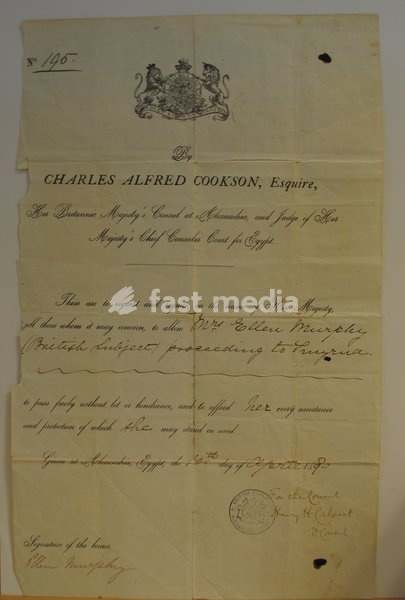 No 195.
By
CHARLES ALFRED COOKSON, Esquire,
Her Britannic Majesty's Consul at Alexandria, and Judge of Her
Majesty's Chief Consular Court for Egypt.
fast media
These are to request and in the name of Her Majesty,
all those whom it may concern, to allow Mrs Ellen Murphy
(British Subject) proceeding to Smyrna.
to pass freely without let or hindrance, and to afford her every assistance
and protection of which she may stand in need
Given at Alexandria, Egypt, the day of April
For the Consul
Henry H Calvert
V Consul
Signature of the bearer.
Ellen Murphy